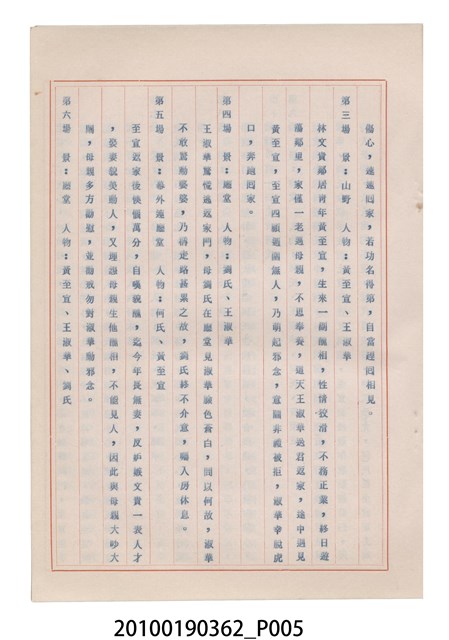 傷心，速速回家，若功名得第，自當迎回相見。
第三場　景：山野　人物：黃至宜、王淑華
林文貴鄰居青年黃至宜，生來一副醜相，性情狡滑，不務正業，終日遊
蕩鄰里，家僅一老邁母親，不思奉養，這天王淑華遇君返家，途中遇見
黃至宜，至宜四顧週圍無人，乃萌起邪念，意圖非禮被拒，淑華幸脫虎
口，奔逃回家。
第四場　景：廳堂　人物：馮氏、王淑華
王淑華驚慌逃返家門，母馮氏在廳堂見淑華臉色蒼白，問以何故，淑華
不敢驚動婆婆，乃謂走路甚累之故，馮氏終不介意，囑入房休息。
第五場　景：郊外幾廳堂　人物：何氏、黃至宜
至宜返家後懊惱萬分，自嘆貌醜，迄今年長無妻，反妒嫉文貴一表人才
，娶妻貌美動人，又埋怨母親生他醜相，不能見人，因此與母親大吵大
鬧，母親多方勸慰，並勸戒勿對淑華動邪念。
第六場　景：廳堂　人物：黃至宜、王淑華、馮氏
20100190362_P005